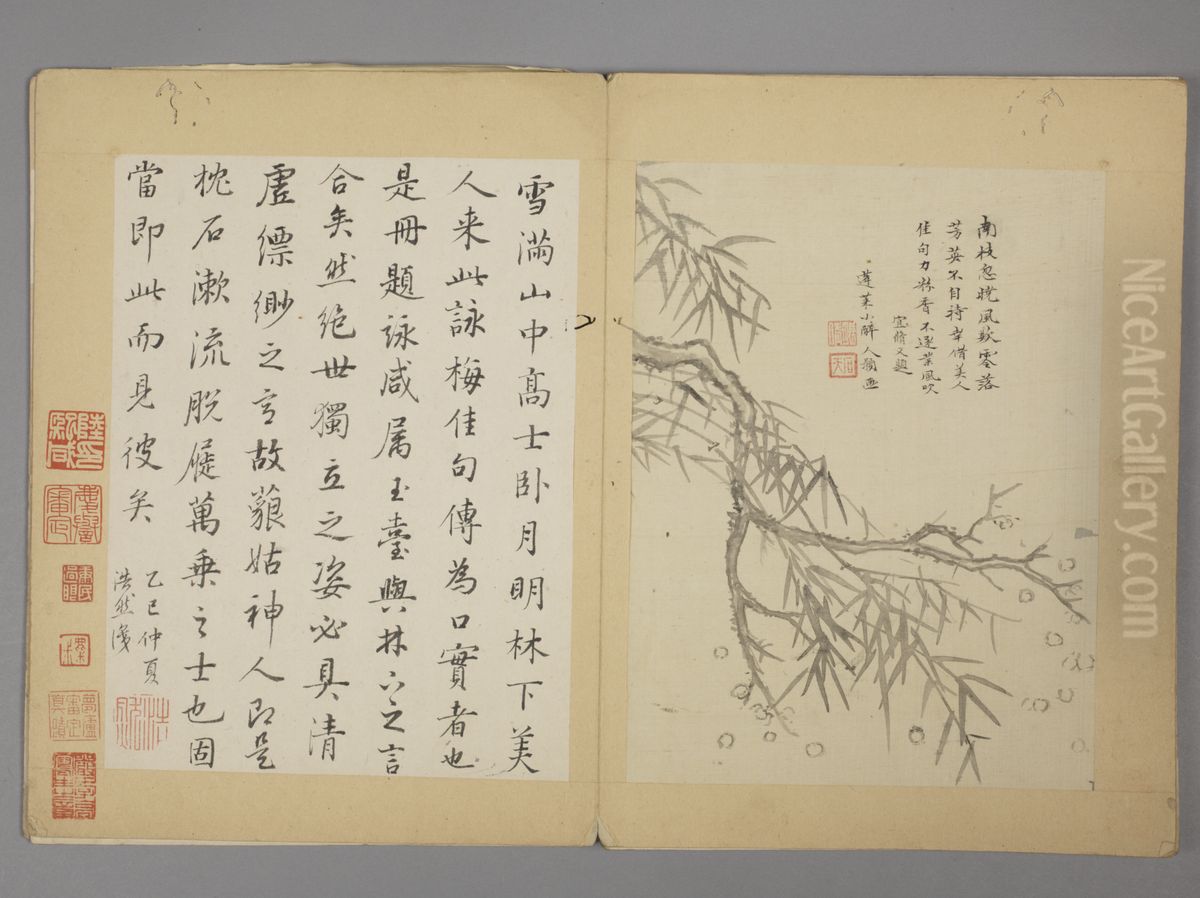 南枝忽晚風欺零落
芳英不自持幸借美人
佳句力粉香不逐業風吹
宜脩又題
蓬萊小醉人稿画
雪滿山中高士卧月明林下美
人来此詠梅佳句傳為口實者也
是冊題詠咸属玉臺與林下之言
合矣然絶世獨立之姿必具清
虚縹緲之言故藐姑神人即是
枕石漱流脱屣萬乗之士也固
當即此而見彼矣
乙巳仲夏
浩然識
NiceArtGallery.com